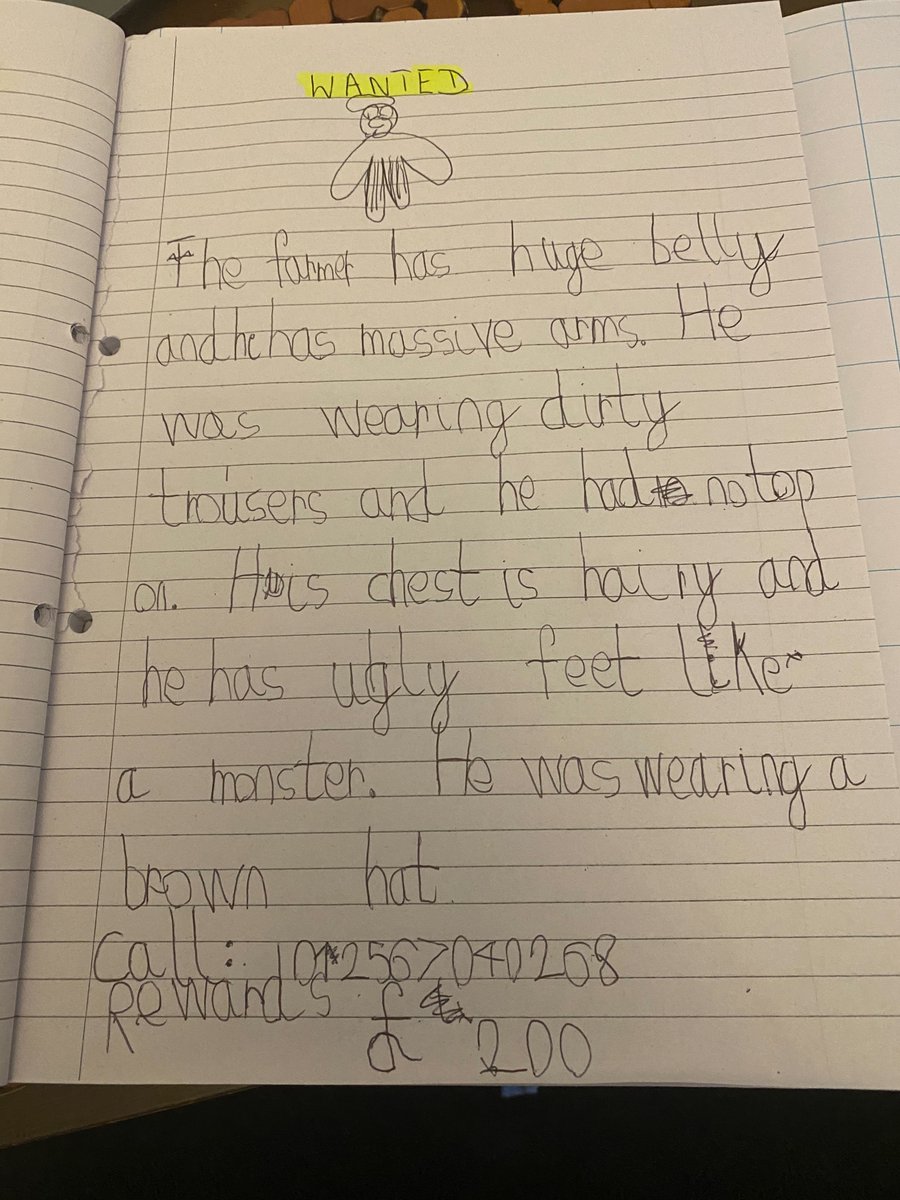 WANTED
The farmer has huge belly
and he has massive arms. He
was wearing dirty
trousers and he had no top
on. His chest is hairy and
he has ugly feet like
a monster. He was wearing a
brown hat.
Call: 
Rewards £ 200